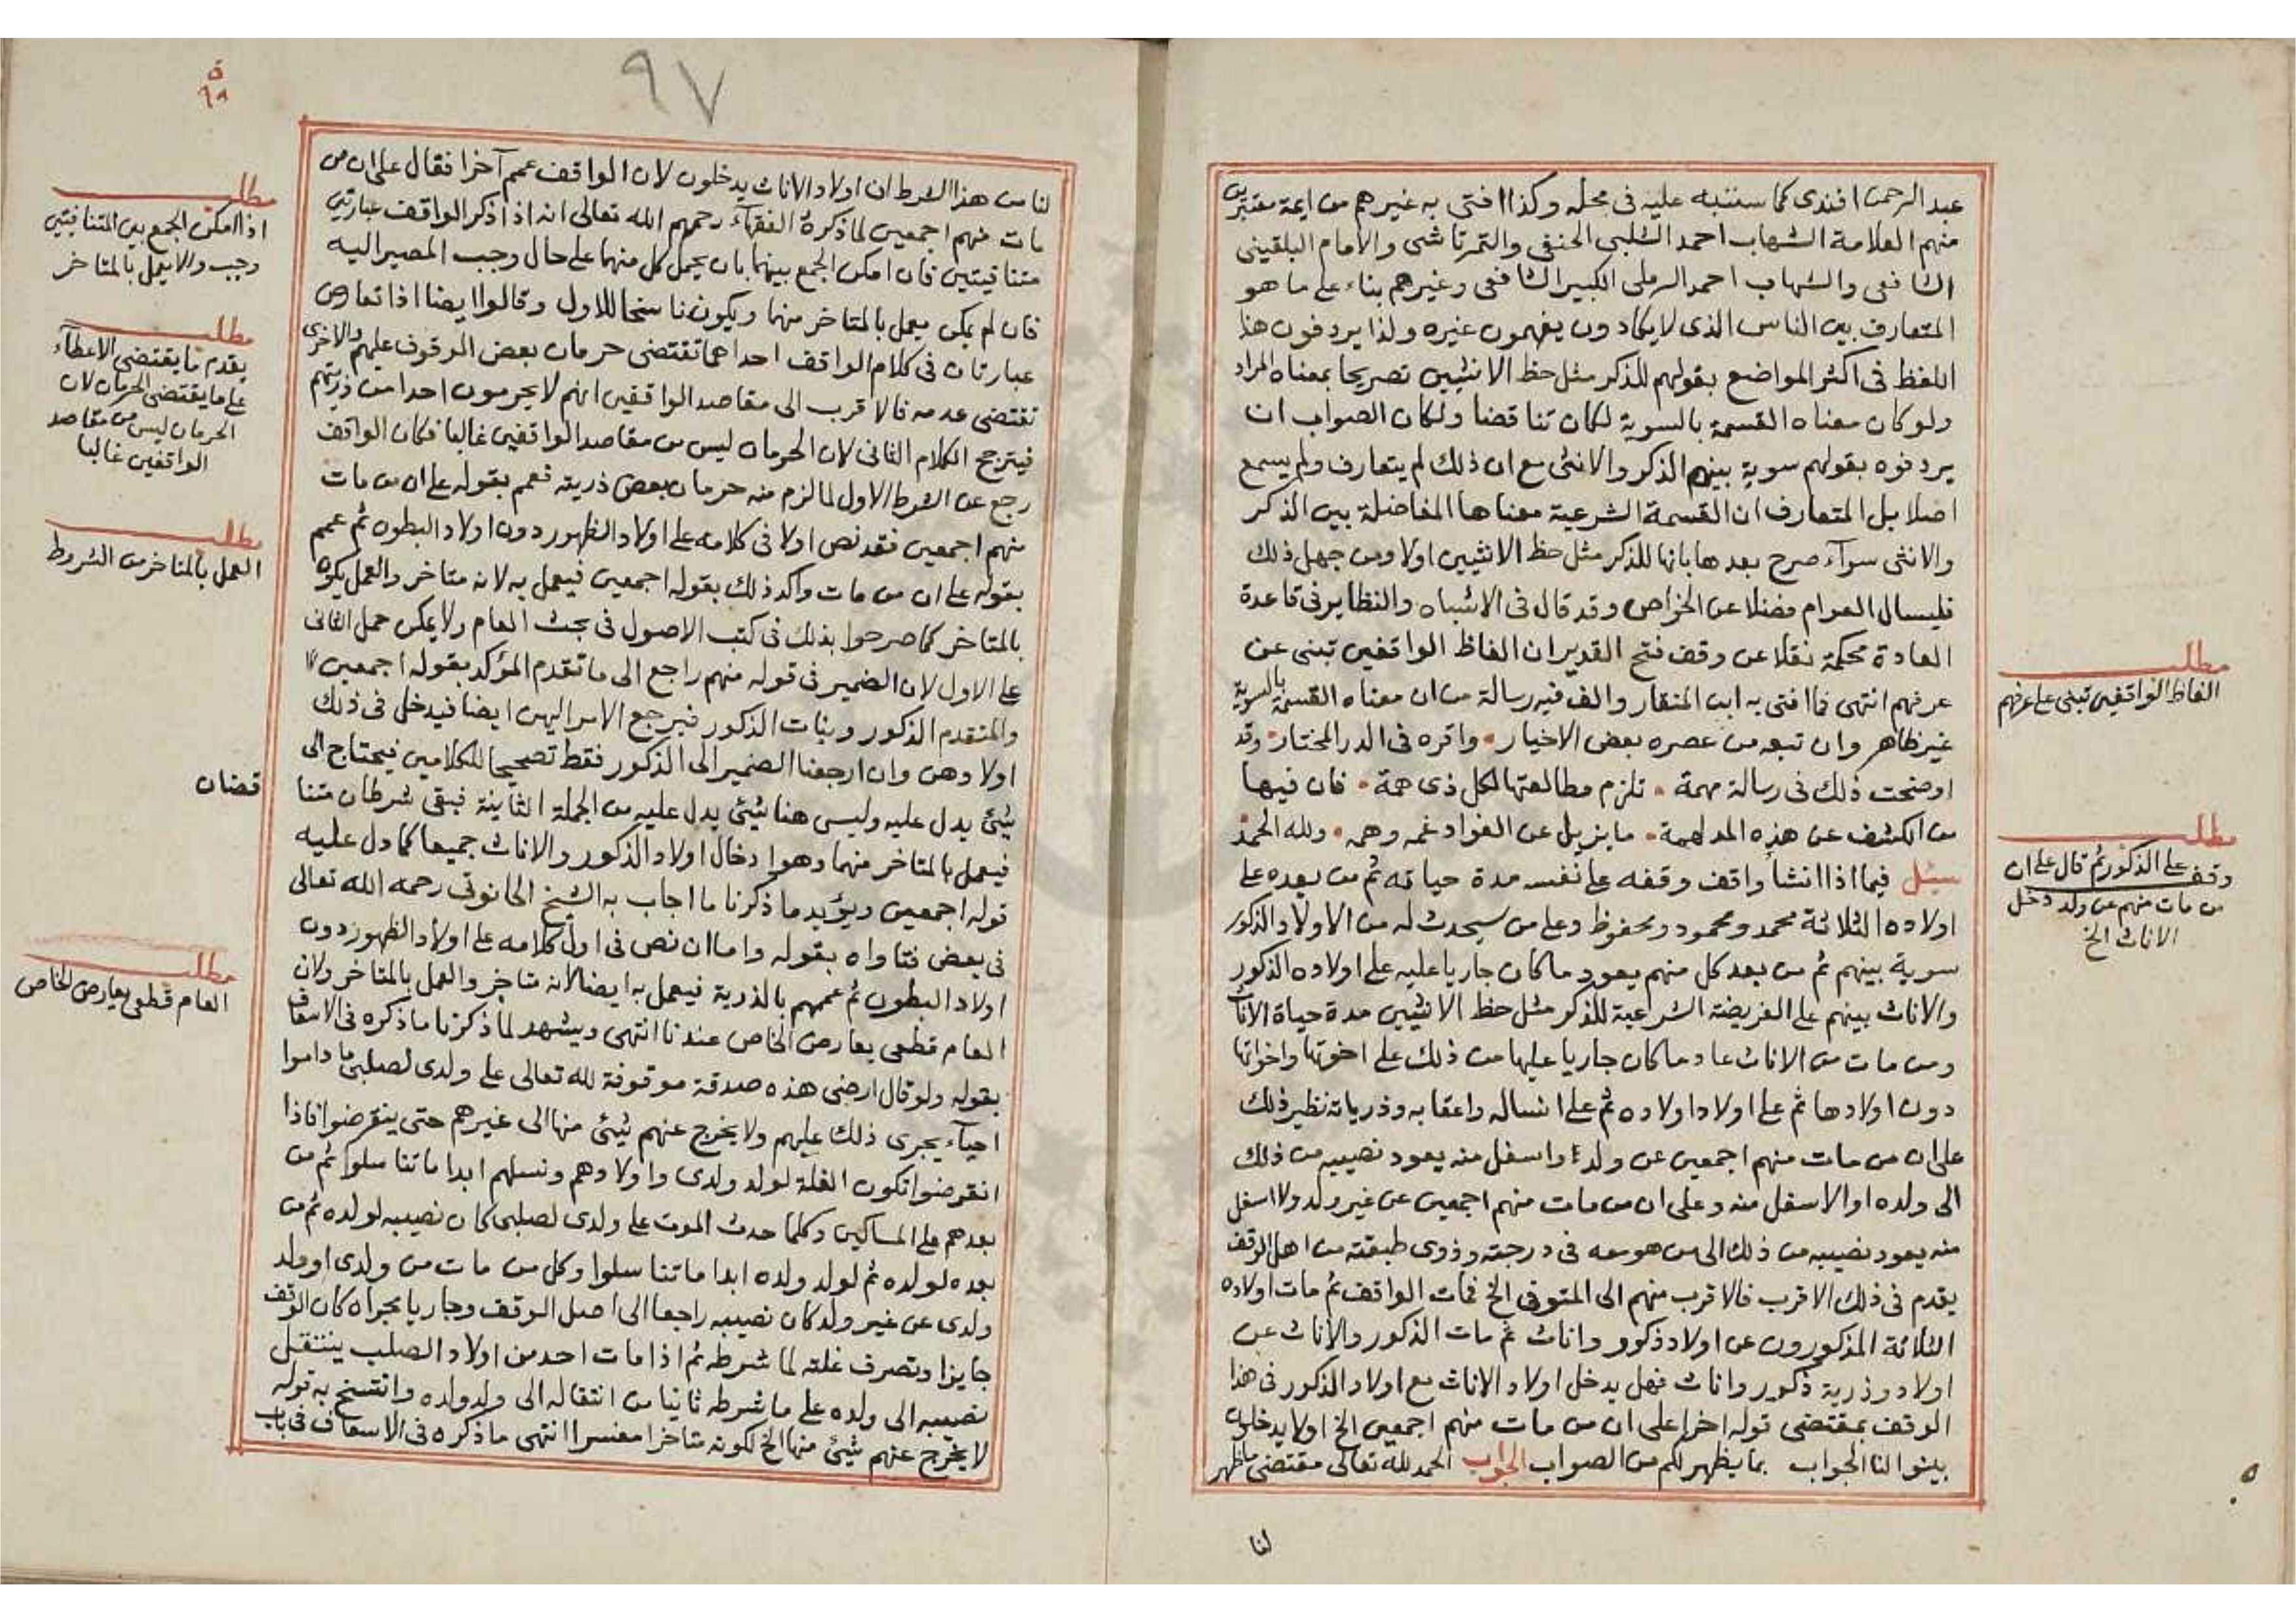 عبد الرحمن افندى كما سننبه عليه فى محله وكذا افتى به غيرهم من ايمة معتبرين
منهم العلامة الشهاب احمد الشلبى الحنفى والتمرتاشى والامام البلقينى
الشافعى والشهاب احمد الرملى الكبير الشافعى وغيرهم بناء على ما هو
المتعارف بين الناس الذى لا يكادون يفهمون غيره ولذا يردفون هذا
اللفظ فى اكثر المواضع بقولهم للذكر مثل حظ الانثيين تصريحا بمعناه المراد
ولو كان معناه القسمة بالسوية لكان تناقضا ولكان الصواب ان
يردفوه بقولهم سوية بينهم الذكر والانثى مع ان ذلك لم يتعارف ولم يسمع
اصلا بل المتعارف ان القسمة الشرعية معناها المفاضلة بين الذكر
والانثى سوآء صرح بعدها بانها للذكر مثل حظ الانثيين اولا ومن جهل ذلك
فليسال العوام فضلا عن الخواص وقد قال فى الاشباه والنظاير فى قاعدة
العادة محكمة نقلا عن وقف فتح القدير ان الفاظ الواقفين تبنى عن
مطلب
الفاظ الواقفين تبنى على عرفهم
عرفهم انتهى فما افتى به ابن المنقار والف فيه رسالة من ان معناه القسمة بالسوية
غير ظاهر وان تبعه من عصره بعض الاخيار • واقره فى الدر المختار • وقد
اوضحت ذلك فى رسالة مهمة • تلزم مطالعتها لكل ذى همة • فان فيها
من الكشف عن هذه المدلهمة • ما يزيل عن الفواد غمه وهمه • ولله الحمد
مطلب
وقف على الذكور ثم قال على ان
من مات منهم عن ولد دخل
الاناث الخ
سئل فيما اذا انشأ واقف وقفه على نفسه مدة حياته ثم من بعده على
اولاده الثلاثة محمد ومحمود ومحفوظ وعلى من سيحدث له من الاولاد الذكور
سوية بينهم ثم من بعد كل منهم يعود ما كان جاريا عليه على اولاده الذكور
والاناث بينهم على الفريضة الشرعية للذكر مثل حظ الانثيين مدة حياة الاناث
ومن مات من الاناث عاد ما كان جاريا عليها من ذلك على اخوتها واخواتها
دون اولادها ثم على اولاد اولاده ثم على انساله واعقابه وذرياته نظير ذلك
على ان من مات منهم اجمعين عن ولد او اسفل منه يعود نصيبه من ذلك
الى ولده او الاسفل منه وعلى ان من مات منهم اجمعين عن غير ولد ولا اسفل
منه يعود نصيبه من ذلك الى من هو معه فى درجته وذوى طبقته من اهل الوقف
يقدم فى ذلك الاقرب فالاقرب منهم الى المتوفى الخ فمات الواقف ثم مات اولاده
الثلاثة المذكورون عن اولاد ذكور واناث ثم مات الذكور والاناث عن
اولاد وذرية ذكور واناث فهل يدخل اولاد الاناث مع اولاد الذكور فى هذا
الوقف بمقتضى قوله اخرا على ان من مات منهم اجمعين الخ اولا يدخلون
بينوا لنا الجواب بما يظهر لكم من الصواب الجواب الحمد لله تعالى مقتضى ما ظهر
لنا
٩٧
٩٨
لنا من هذا الشرط ان اولاد الاناث يدخلون لان الواقف عمم آخرا فقال على ان من
مات منهم اجمعين لما ذكره الفقهآء رحمهم الله تعالى انه اذا ذكر الواقف عبارتين
متنافيتين فان امكن الجمع بينهما بان يحمل كل منهما على حال وجب المصير اليه
مطلب
اذا امكن الجمع بين المتنافيتين
وجب والا يعمل بالمتاخر
فان لم يكن يعمل بالمتاخر منهما ويكون ناسخا للاول وقالوا ايضا اذا تعارض
عبارتان فى كلام الواقف احداهما تقتضى حرمان بعض الموقوف عليهم والاخرى
تقتضى عدمه فالاقرب الى مقاصد الواقفين انهم لا يحرمون احدا من ذريتهم
فيترجح الكلام الثانى لان الحرمان ليس من مقاصد الواقفين غالبا فكان الواقف
مطلب
يقدم ما يقتضى الاعطآء
على ما يقتضى الحرمان لان
الحرمان ليس من مقاصد
الواقفين غالبا
رجع عن الشرط الاول لما لزم منه حرمان بعض ذريته فعمم بقوله على ان من مات
منهم اجمعين فقد نص اولا فى كلامه على اولاد الظهور دون اولاد البطون ثم عمم
بقوله على ان من مات واكد ذلك بقوله اجمعين فيعمل به لانه متاخر والعمل يكون
مطلب
العمل بالمتاخر من الشروط
بالمتاخر كما صرحوا بذلك فى كتب الاصول فى بحث العام ولا يمكن حمل الثانى
على الاول لان الضمير فى قوله منهم راجع الى ما تقدم المؤكد بقوله اجمعين
والمتقدم الذكور وبنات الذكور فيرجع الامر اليهن ايضا فيدخل فى ذلك
اولادهن وان ارجعنا الضمير الى الذكور فقط تصحيحا للكلامين فيحتاج الى
شيئ يدل عليه وليس هنا شيئ يدل عليه من الجملة الثانية فبقى شرطان متنا
قضان
فيعمل بالمتاخر منهما وهو ادخال اولاد الذكور والاناث جميعا كما دل عليه
قوله اجمعين ويؤيد ما ذكرنا ما اجاب به الشيخ الحانوتى رحمه الله تعالى
فى بعض فتاواه بقوله واما ان نص فى اول كلامه على اولاد الظهور دون
اولاد البطون ثم عممهم بالذرية فيعمل به ايضا لانه متاخر والعمل بالمتاخر ولان
العام قطعى يعارض الخاص عندنا انتهى ويشهد لما ذكرنا ما ذكره فى الاسعاف
مطلب
العام قطعى يعارض الخاص
بقوله ولو قال ارضى هذه صدقة موقوفة لله تعالى على ولدى لصلبى ما داموا
احيآء يجرى ذلك عليهم ولا يخرج عنهم شيئ منها الى غيرهم حتى ينقرضوا فاذا
انقرضوا تكون الغلة لولد ولدى واولادهم ونسلهم ابدا ما تناسلوا ثم من
بعدهم على المساكين وكلما حدث الموت على ولدى لصلبى كان نصيبه لولده ثم من
بعده لولده ثم لولد ولده ابدا ما تناسلوا وكل من مات من ولدى او ولد
ولدى عن غير ولد كان نصيبه راجعا الى اصل الوقف وجاريا مجراه كان الوقف
جايزا وتصرف غلته لما شرطه ثم اذا مات احد من اولاد الصلب ينتقل
نصيبه الى ولده على ما شرطه ثانيا من انتقاله الى ولد ولده وانتسخ به قوله
لا يخرج عنهم شيئ منها الخ لكونه متاخرا مفسرا انتهى ما ذكره فى الاسعاف فى باب